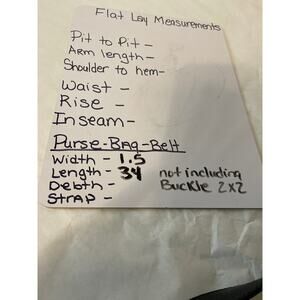 Flat Lay Measurements
Pit to Pit -
Arm length -
Shoulder to hem -
Waist -
Rise -
Inseam -
Purse - Bag - Belt
Width - 1.5
Length - 34 not including
Debth - Buckle 2x2
Strap -